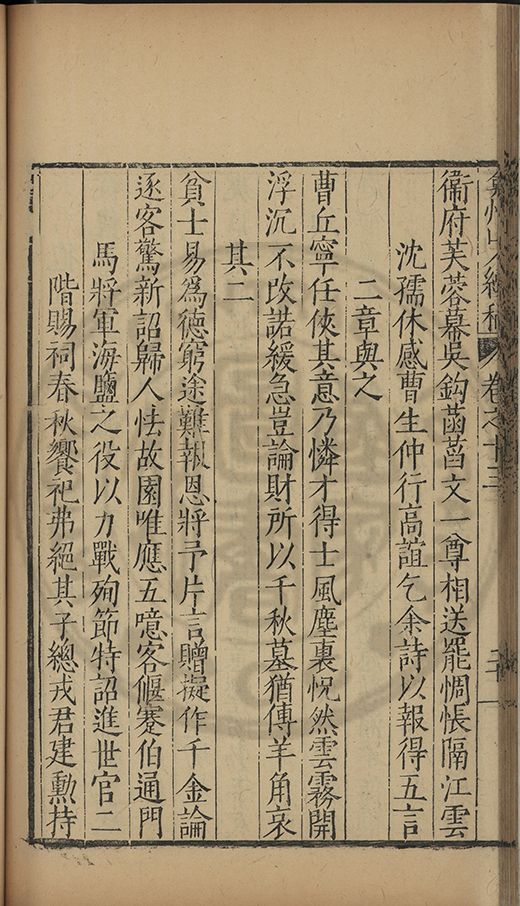 弇州山人續稿 卷之十三 二十一
衞府芙蓉幕吳鈎菡萏文一尊相送罷惆悵隔江雲
沈孺休感曹生仲行高誼乞余詩以報得五言
二章與之
曹丘寧任俠其意乃憐才得士風塵裏怳然雲霧開
浮沉不改諾緩急豈論財所以千秋墓猶傳羊角哀
其二
貧士易爲德窮途難報恩將予片言贈擬作千金論
逐客驚新詔歸人怯故園唯應五噫客偃蹇伯通門
馬將軍海鹽之役以力戰殉節特詔進世官二
階賜祠春秋饗祀弗絕其子總戎君建勳持